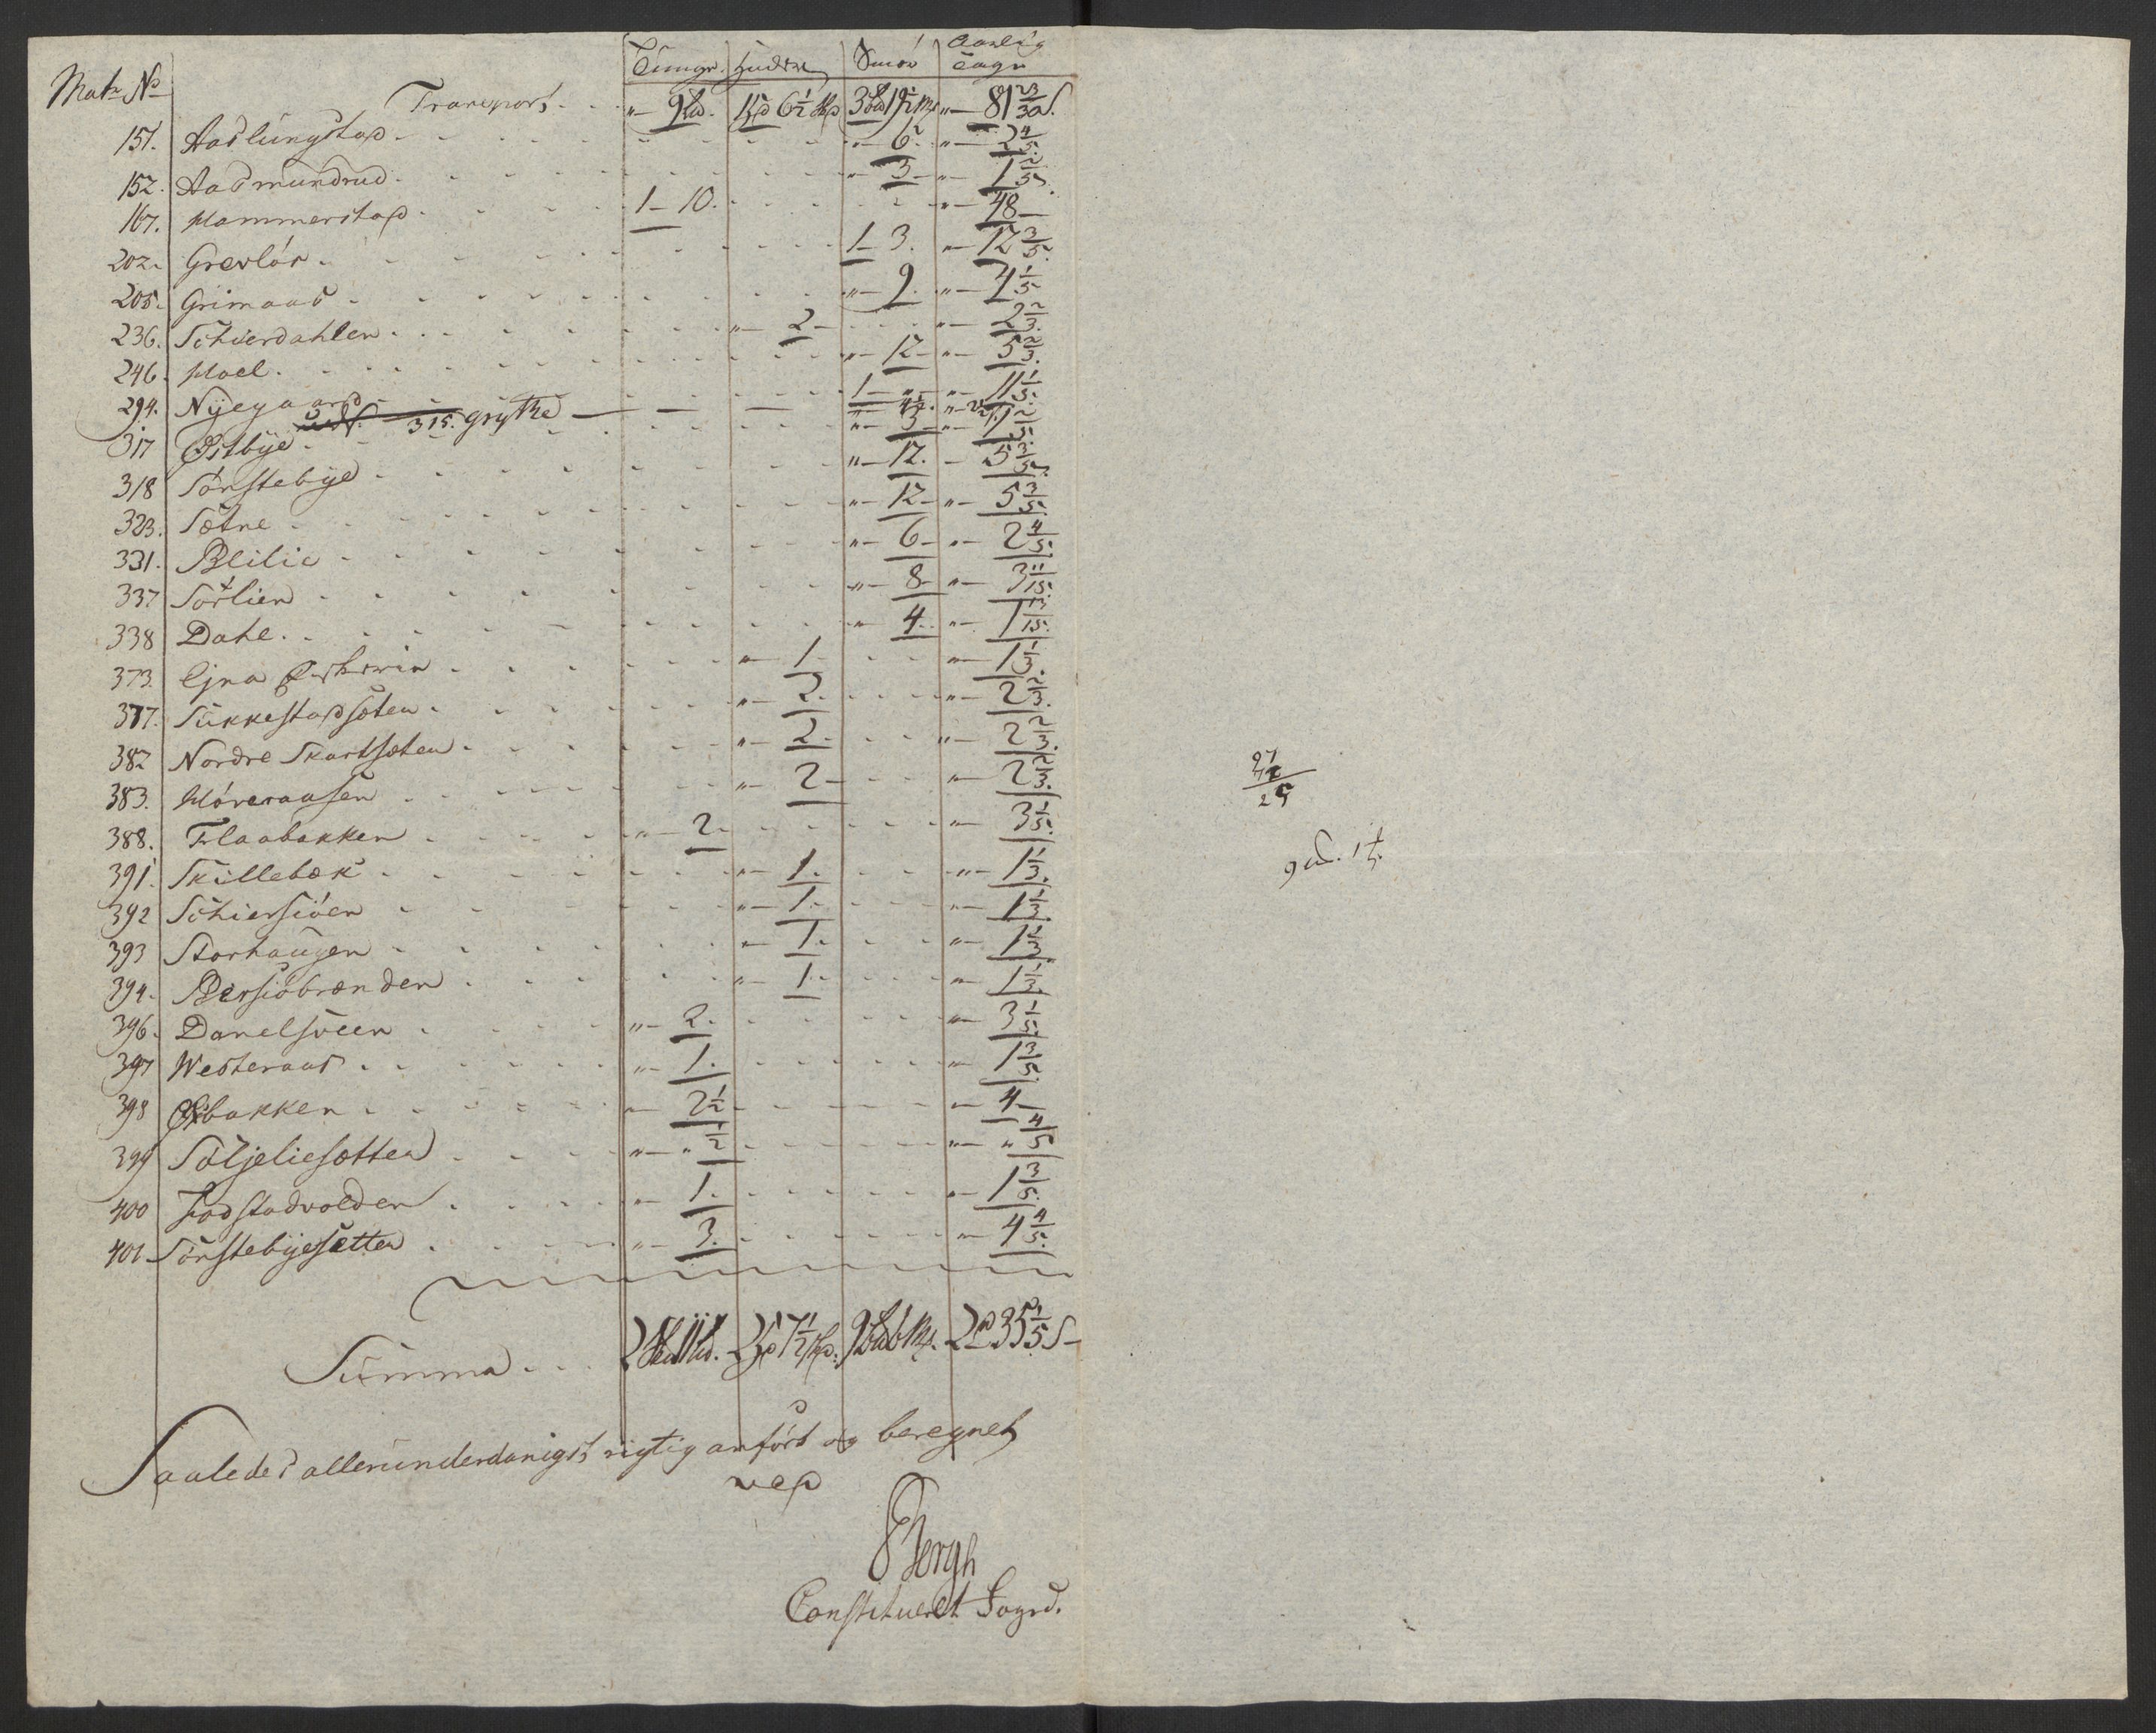 Matr No Tunge. Huder Smör Aarlig Tage
Transport. . . " 9 Ld. 1 Hd 6½ Skd 3 Bd 19½ Mk " — 81 23/30 s.
151. Aaslungstad . . . " — 6. " — 2 4/5.
152. Aasmundrud . . . " 3 — " — 1 2/5.
167. Hammerstad . . . 1 — 10. . . . " — 48 —
202. Grevlös . . . 1 — 3. " — 12 3/5.
205. Grimaas . . . " — 9. " — 4 1/5
236. Schierdahlen . . . " — 2 — . . . " — 2 2/3.
246. Moel . . . " — 12 — " — 5 3/5.
294. Nyegaard . . . 1 — " — " — 11 1/5.
315. Grythe — — — " 4½. " — 2 1/10
317 Östbye . . . " — 3 — " — 1 2/5.
318 Sönstebye . . . " — 12. — 5 3/5.
323. Sætre . . . " — 12 — " — 5 3/5.
331. Blilie . . . " — 6 — " — 2 4/5.
337 Sörlien . . . " — 8 — " — 3 11/15.
338 Dahl . . . " 4. . " — 1 13/15.
373. Ejna Östhrvin . . . " — 1 — . . . " — 1 1/3.
377. Sukkestadsæten . . . " — 2. . . . " — 2 2/3.
382 Nordre Skartsæten . . . " — 2 — . . . " — 2 2/3.
383. Höveraasen . . . " — 2 — . . . " — 2 2/3.
388. Flaabakken . . . " — 2. . . . " — 3 1/5.
391. Skillebæk . . . " — 1. . . . " — 1 1/3.
392 Schiersiöen . . . " — 1. . . . " — 1 1/3.
393 Storhaugen . . . " — 1. . . . " — 1 1/3
394. Bersiöbrænden . . . " — 1. . . . " — 1 1/3.
396. Danelsveen . . . " — 2. . . . " — 3 1/5.
397 Westeraas . . . " — 1. . . . " — 1 3/5.
398 Exbakken . . . " — 2½ — — — " — 4 —
399 Söljeliesætten . . . " — " ½ . . . " — " 4/5
400 Fodstadvolden . . . " — 1. . . . " — 1 3/5.
401 Sönstebyesetten . . . " — 3. . . . " — 4 4/5.
Summa . . . 2 Skd 1 Ld. 2 Hd 7½ Skd. 9 Bd 6 Mk. 2 rd 35 1/5 s —
Saaledes allerunderdanigst rigtig anfört og beregnet
ved
Bergh
Constitueret Fogd.